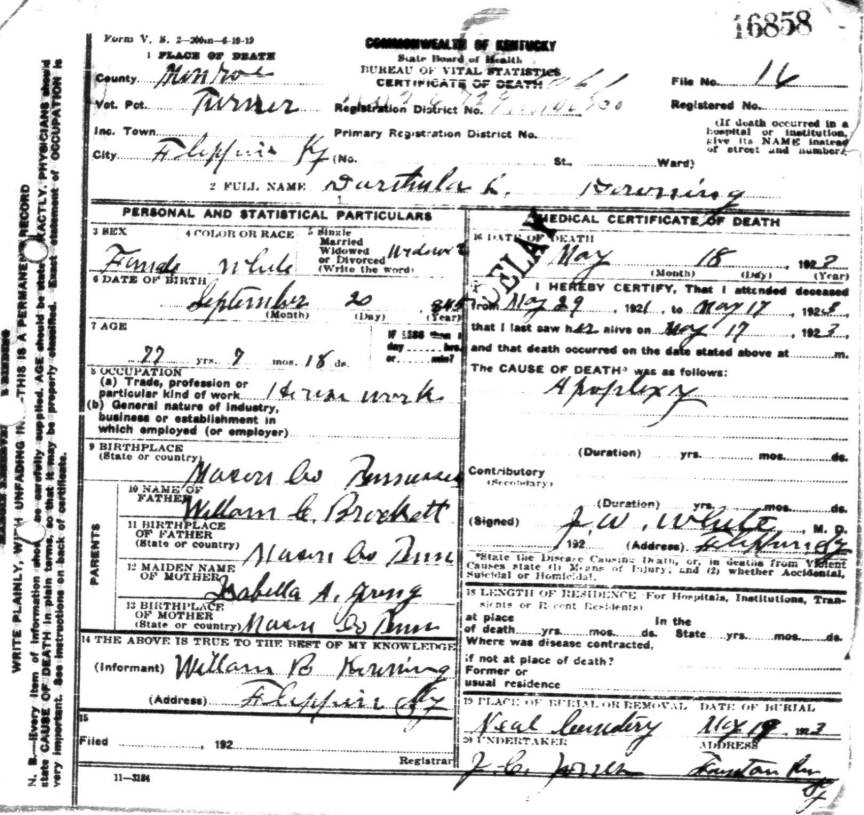 16858
Form V. S. 2-200m-6-19-19
COMMONWEALTH OF KENTUCKY
State Board of Health
BUREAU OF VITAL STATISTICS
CERTIFICATE OF DEATH
1 PLACE OF DEATH
County Monroe
File No. 16
Vot. Pct. Turner
Registration District No.
Registered No.
Inc. Town
Primary Registration District No.
(If death occurred in a
hospital or institution,
give its NAME instead
of street and number.
City Flippin Ky (No. St., Ward)
2 FULL NAME Darthula
PERSONAL AND STATISTICAL PARTICULARS
3 SEX
Female
4 COLOR OR RACE
White
5 Single
Married
Widowed
or Divorced
(Write the word)
6 DATE OF BIRTH
September 20
(Month) (Day) (Year)
7 AGE
77 yrs. 7 mos. 18 ds.
IF LESS than 1
day hrs.
or min?
8 OCCUPATION
(a) Trade, profession or
particular kind of work House work
(b) General nature of industry,
business or establishment in
which employed (or employer)
9 BIRTHPLACE
(State or country) Macon Co Tennessee
PARENTS
10 NAME OF
FATHER William C. Brockett
11 BIRTHPLACE
OF FATHER
(State or country) Macon Co Tenn
12 MAIDEN NAME
OF MOTHER Isabella A.
13 BIRTHPLACE
OF MOTHER
(State or country) Macon Co Tenn
14 THE ABOVE IS TRUE TO THE BEST OF MY KNOWLEDGE
(Informant) William B
(Address) Flippin Ky
15
Filed , 192
Registrar
11-3184
MEDICAL CERTIFICATE OF DEATH
DELAY
16 DATE OF DEATH
May 18 , 1923
(Month) (Day) (Year)
I HEREBY CERTIFY, That I attended deceased
from May 29 , 1921, to May 17 , 1923,
that I last saw her alive on May 17 , 1923,
and that death occurred on the date stated above at m.
The CAUSE OF DEATH* was as follows:
Apoplexy
(Duration) yrs. mos. ds.
Contributory
(Secondary)
(Duration) yrs. mos. ds.
(Signed) J. W. White M. D.
, 192 (Address) Flippin Ky
*State the Disease Causing Death, or, in deaths from Violent
Causes state (1) Means of Injury; and (2) whether Accidental,
Suicidal or Homicidal.
18 LENGTH OF RESIDENCE (For Hospitals, Institutions, Tran-
sients or Recent Residents)
at place
of death yrs. mos. ds.
In the
State yrs. mos. ds.
Where was disease contracted,
if not at place of death?
Former or
usual residence
19 PLACE OF BURIAL OR REMOVAL DATE OF BURIAL
Neal Cemetery May 19 , 1923
20 UNDERTAKER ADDRESS
J. C. Jones Fountain Run
Ky
WRITE PLAINLY, WITH UNFADING IN --THIS IS A PERMANENT RECORD
N. B.--Every item of information should be carefully supplied. AGE should be stated EXACTLY. PHYSICIANS should
state CAUSE OF DEATH in plain terms, so that it may be properly classified. Exact statement of OCCUPATION is
very important. See instructions on back of certificate.